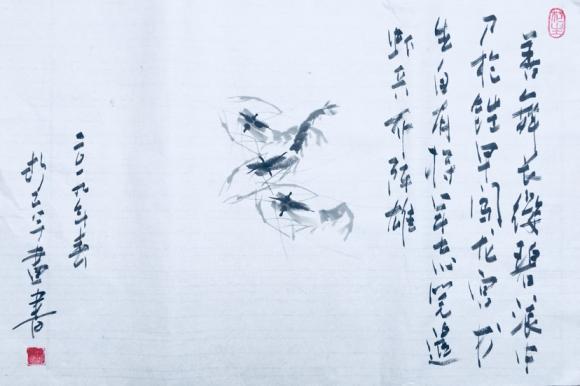 善舞长缨碧浪中
刀枪铠甲闯龙宫
生自有将军志
虾兵布阵雄
二〇一九年春
画书